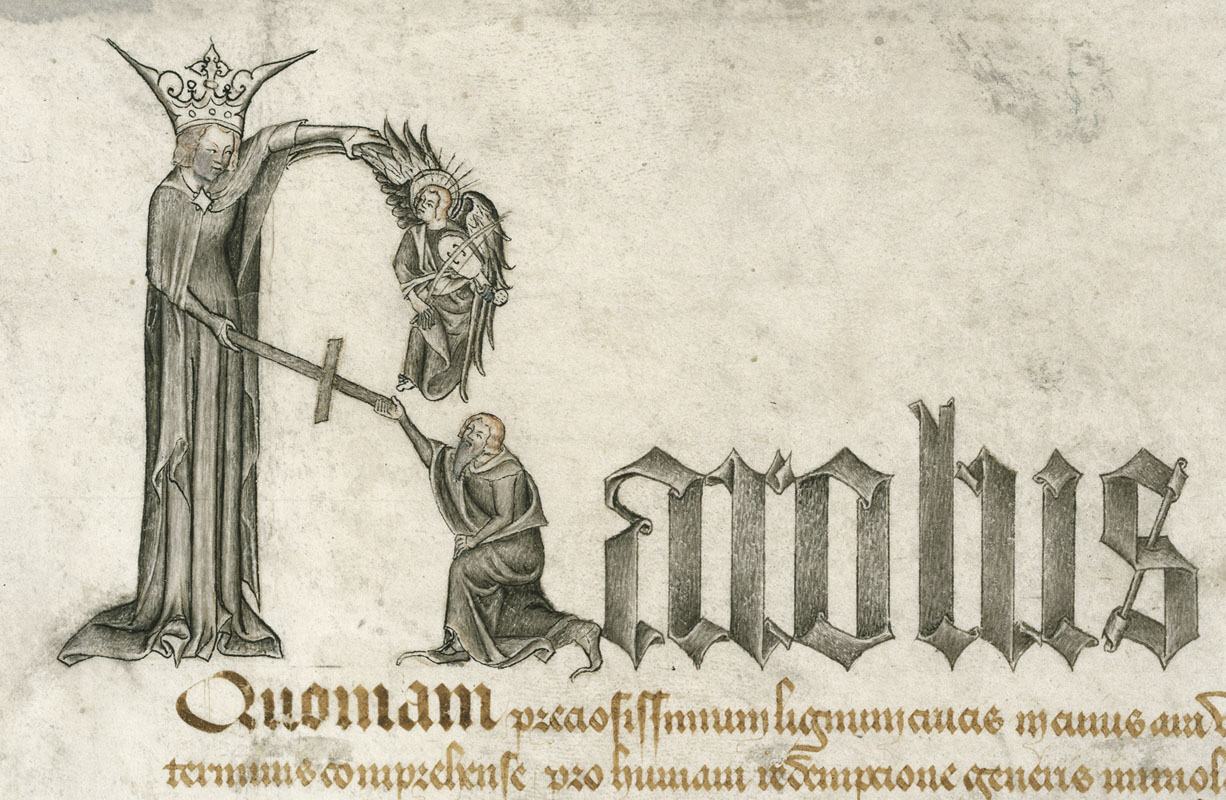 Karolus
Quoniam preciosissimum lignum crucis in cuius ara
terminis comprehense pro humani redempcione generis